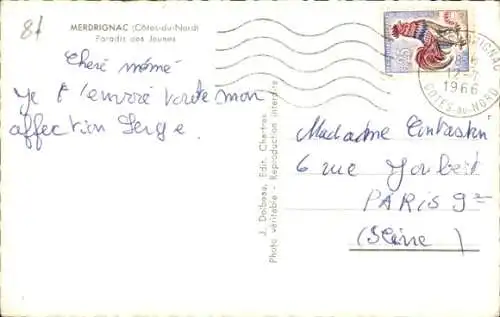 81
MERDRIGNAC (Côtes-du-Nord)
Paradis des Jeunes
Cheré mémé
Je t'envoie toute mon
affection Serge.
J. Dolbeau, Edit. Chartres
Photo véritable - Reproduction interdite
0,25
MERDRIGNAC
8-
12-7
1966
COTES-DU-NORD
Madame
6 rue Joubert
PARIS 9e
(Seine)